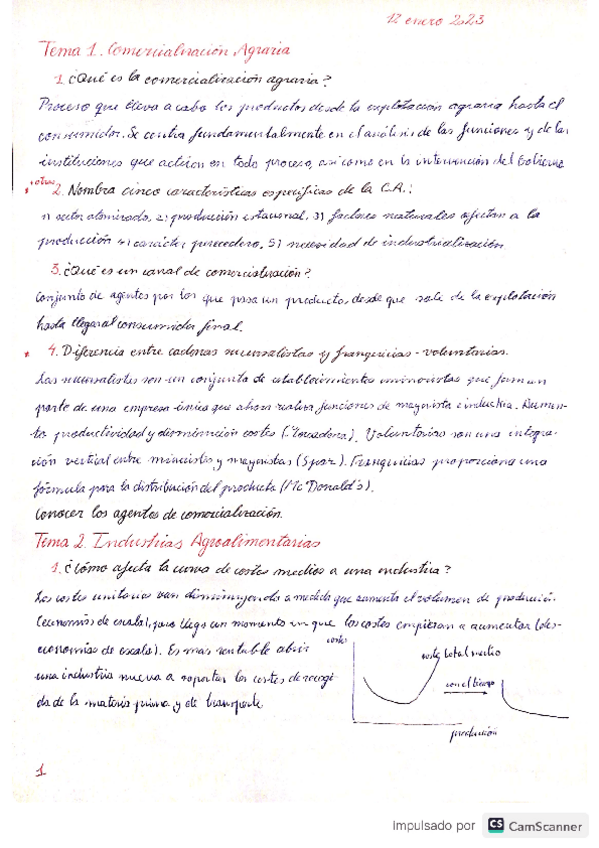 12 enero 2023
Tema 1. Comercialización Agraria
1. ¿Qué es la comercialización agraria?
Proceso que lleva a cabo los productos desde la explotación agraria hasta el
consumidor. Se centra fundamentalmente en el análisis de las funciones y de las
instituciones que actúan en todo proceso, así como en la intervención del Gobierno
* otras 2. Nombra cinco características específicas de la C.A.:
1) sector atomizado, 2) producción estacional, 3) factores naturales afectan a la
producción 4) carácter perecedero, 5) necesidad de industrialización.
3. ¿Qué es un canal de comercialización?
Conjunto de agentes por los que pasa un producto, desde que sale de la explotación
hasta llegar al consumidor final.
* 4. Diferencia entre cadenas sucursalistas y franquicias - voluntarias.
Las sucursalistas son un conjunto de establecimientos minoristas que forman
parte de una empresa única que ahora realiza funciones de mayorista e industria. Aumen-
ta productividad y disminución costes (Mercadona). Voluntarias son una integra-
ción vertical entre minoristas y mayoristas (Spar). Franquicias proporciona una
fórmula para la distribución del producto (Mc Donald's).
Conocer los agentes de comercialización.
Tema 2. Industrias Agroalimentarias
1. ¿Cómo afecta la curva de costes medios a una industria?
Los costes unitarios van disminuyendo a medida que aumenta el volumen de producción
(economías de escala), pero llega un momento en que los costes empiezan a aumentar (des-
economías de escala). Es más rentable abrir
una industria nueva a soportar los costes de recogi-
da de la materia prima y de transporte.
costes
coste total medio
con el tiempo
producción
1
Impulsado por CS CamScanner